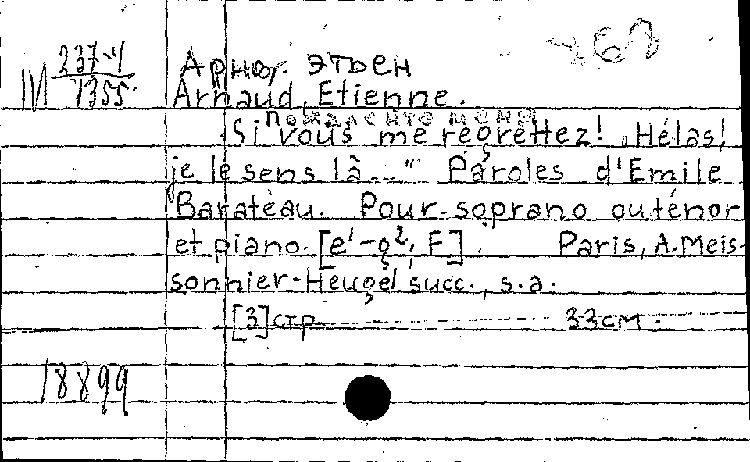 М 237-4
1355
Арно, Этьен
Arnaud, Etienne.
Пожалейте меня
Si vous me regrettez! "Hélas!
je le sens là..." Paroles d'Emile
Barateau. Pour soprano ou ténor
et piano. [e¹-g², F]. Paris, A. Meis-
sonnier-Heugel succ., s.a.
[3] стр. 33 см.
18899